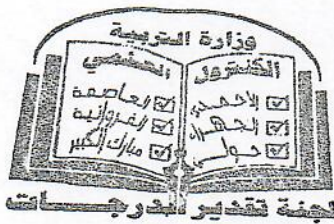 وزارة التربية
الكنترول
الأحمدي
الجهراء
حولي
العلمي
العاصمة
الفروانية
مبارك الكبير
لجنة تقدير الدرجات